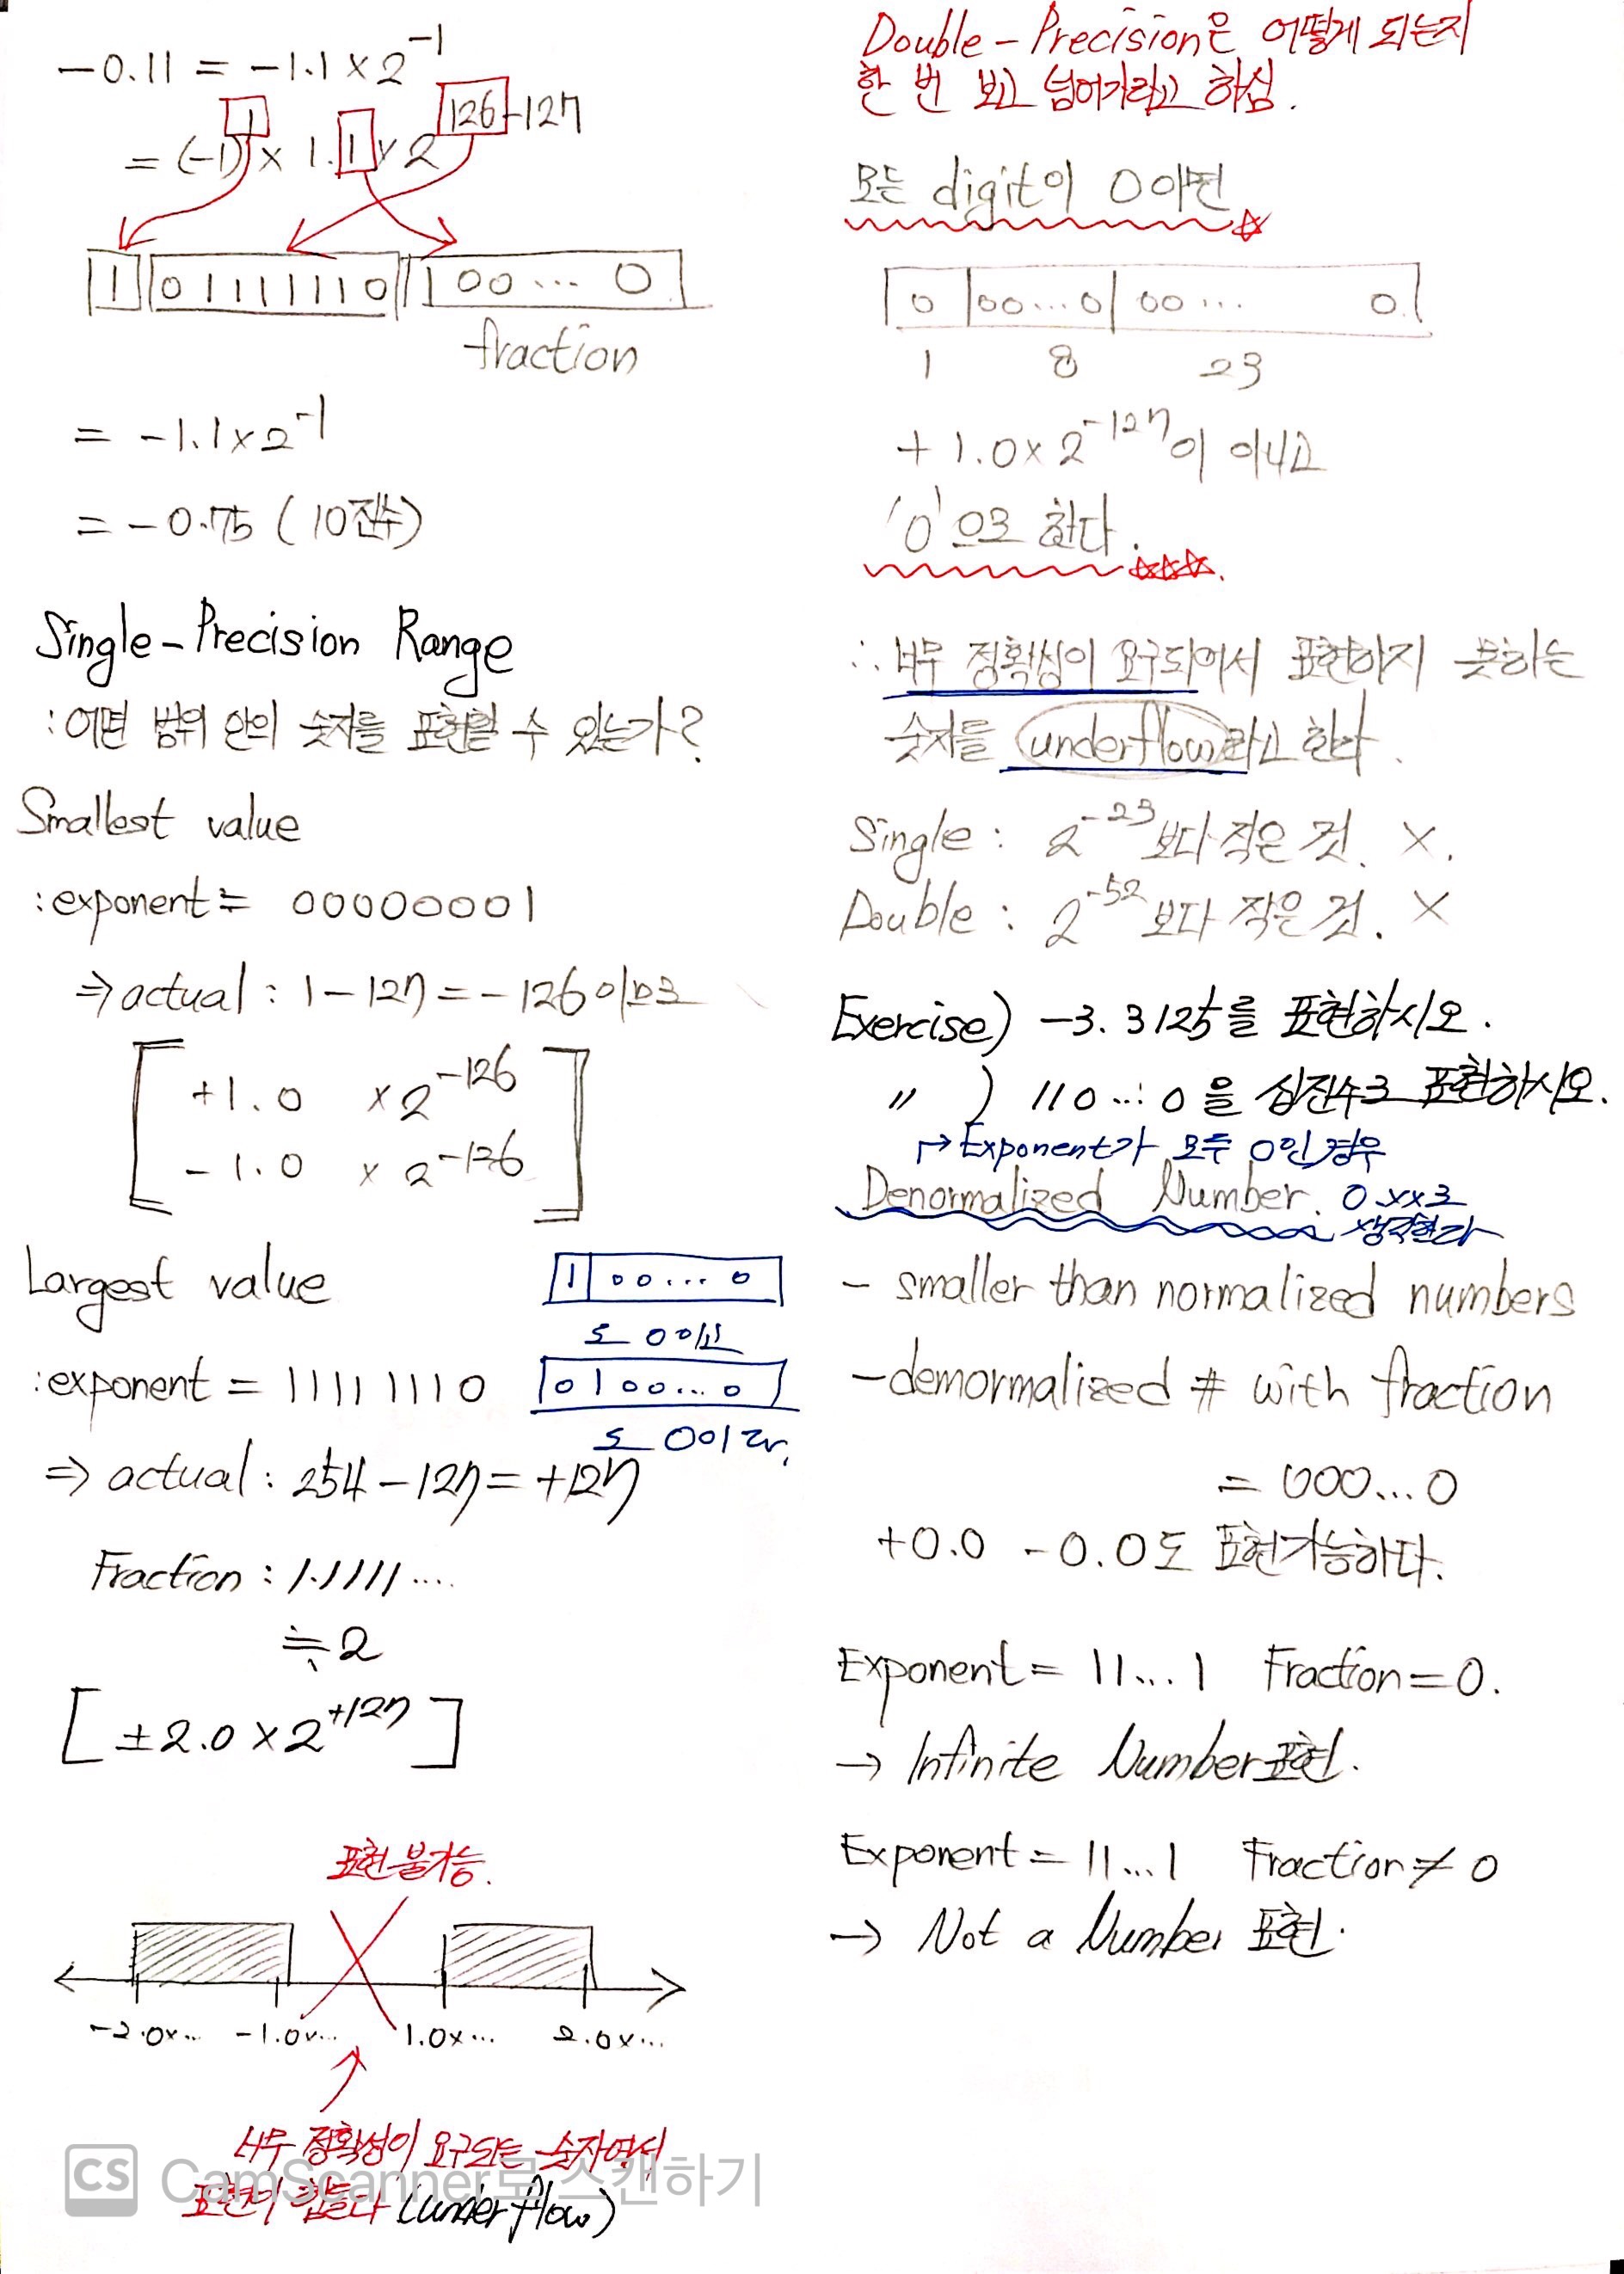 -0.11 = -1.1 × 2^-1
= (-1)^1 × 1.1 × 2^126-127
1 01111110 100 ... 0
fraction
= -1.1 × 2^-1
= -0.75 (10진수)
Single-Precision Range
: 어떤 범위 안의 숫자를 표현할 수 있는가?
Smallest value
: exponent = 00000001
⇒ actual : 1 - 127 = -126이므로
+1.0 × 2^-126
-1.0 × 2^-126
Largest value
1 00... 0
도 0이고
: exponent = 11111110
0 1 00... 0
도 0이라.
⇒ actual : 254 - 127 = +127
Fraction : 1.1111 ....
≒ 2
[ ±2.0 × 2^+127 ]
표현 불가능.
-2.0×... -1.0×... 1.0×... 2.0×...
너무 정확성이 요구되는 숫자여서
표현이 힘들다 (underflow)
Double-Precision은 어떻게 되는지
한 번 보고 넘어가라고 하심.
모든 digit이 0이면
0 00...0 00 ... 0
1 8 23
+ 1.0 × 2^-127이 아니고
'0'으로 한다.
∴ 너무 정확성이 요구되어서 표현하지 못하는
숫자를 underflow라고 한다.
Single : 2^-23보다 작은 것. ×.
Double : 2^-52보다 작은 것. ×
Exercise) -3.3125를 표현하시오.
〃 ) 110...0을 십진수로 표현하시오.
↱ Exponent가 모두 0인 경우
Denormalized Number. 0.xx로
생각한다
- smaller than normalized numbers
- denormalized # with fraction
= 000...0
+0.0 -0.0도 표현가능하다.
Exponent = 11...1 Fraction = 0.
→ Infinite Number표현.
Exponent = 11...1 Fraction ≠ 0
→ Not a Number 표현.
CS CamScanner로 스캔하기